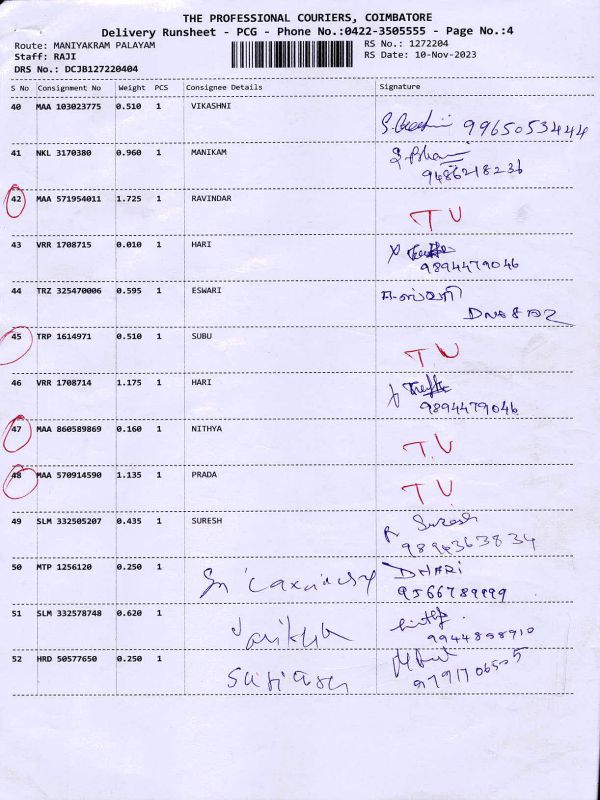 THE PROFESSIONAL COURIERS, COIMBATORE
Delivery Runsheet - PCG - Phone No.:0422-3505555 - Page No.:4
Route: MANIYAKRAM PALAYAM
RS No.: 1272204
Staff: RAJI
RS Date: 10-Nov-2023
DRS No.: DCJB127220404
S No Consignment No Weight PCS Consignee Details Signature
40 MAA 103023775 0.510 1 VIKASHNI
9965053444
41 NKL 3170380 0.960 1 MANIKAM
9486218236
42 MAA 571954011 1.725 1 RAVINDAR TU
43 VRR 1708715 0.010 1 HARI
9894479046
44 TRZ 325470006 0.595 1 ESWARI
45 TRP 1614971 0.510 1 SUBU T.U
46 VRR 1708714 1.175 1 HARI
9894479046
47 MAA 860589869 0.160 1 NITHYA T.U
48 MAA 570914590 1.135 1 PRADA TU
49 SLM 332505207 0.435 1 SURESH R Suresh
9894363834
50 MTP 1256120 0.250 1 Sri DHARI
9566789999
51 SLM 332578748 0.620 1
9944898910
52 HRD 50577650 0.250 1
9791706505